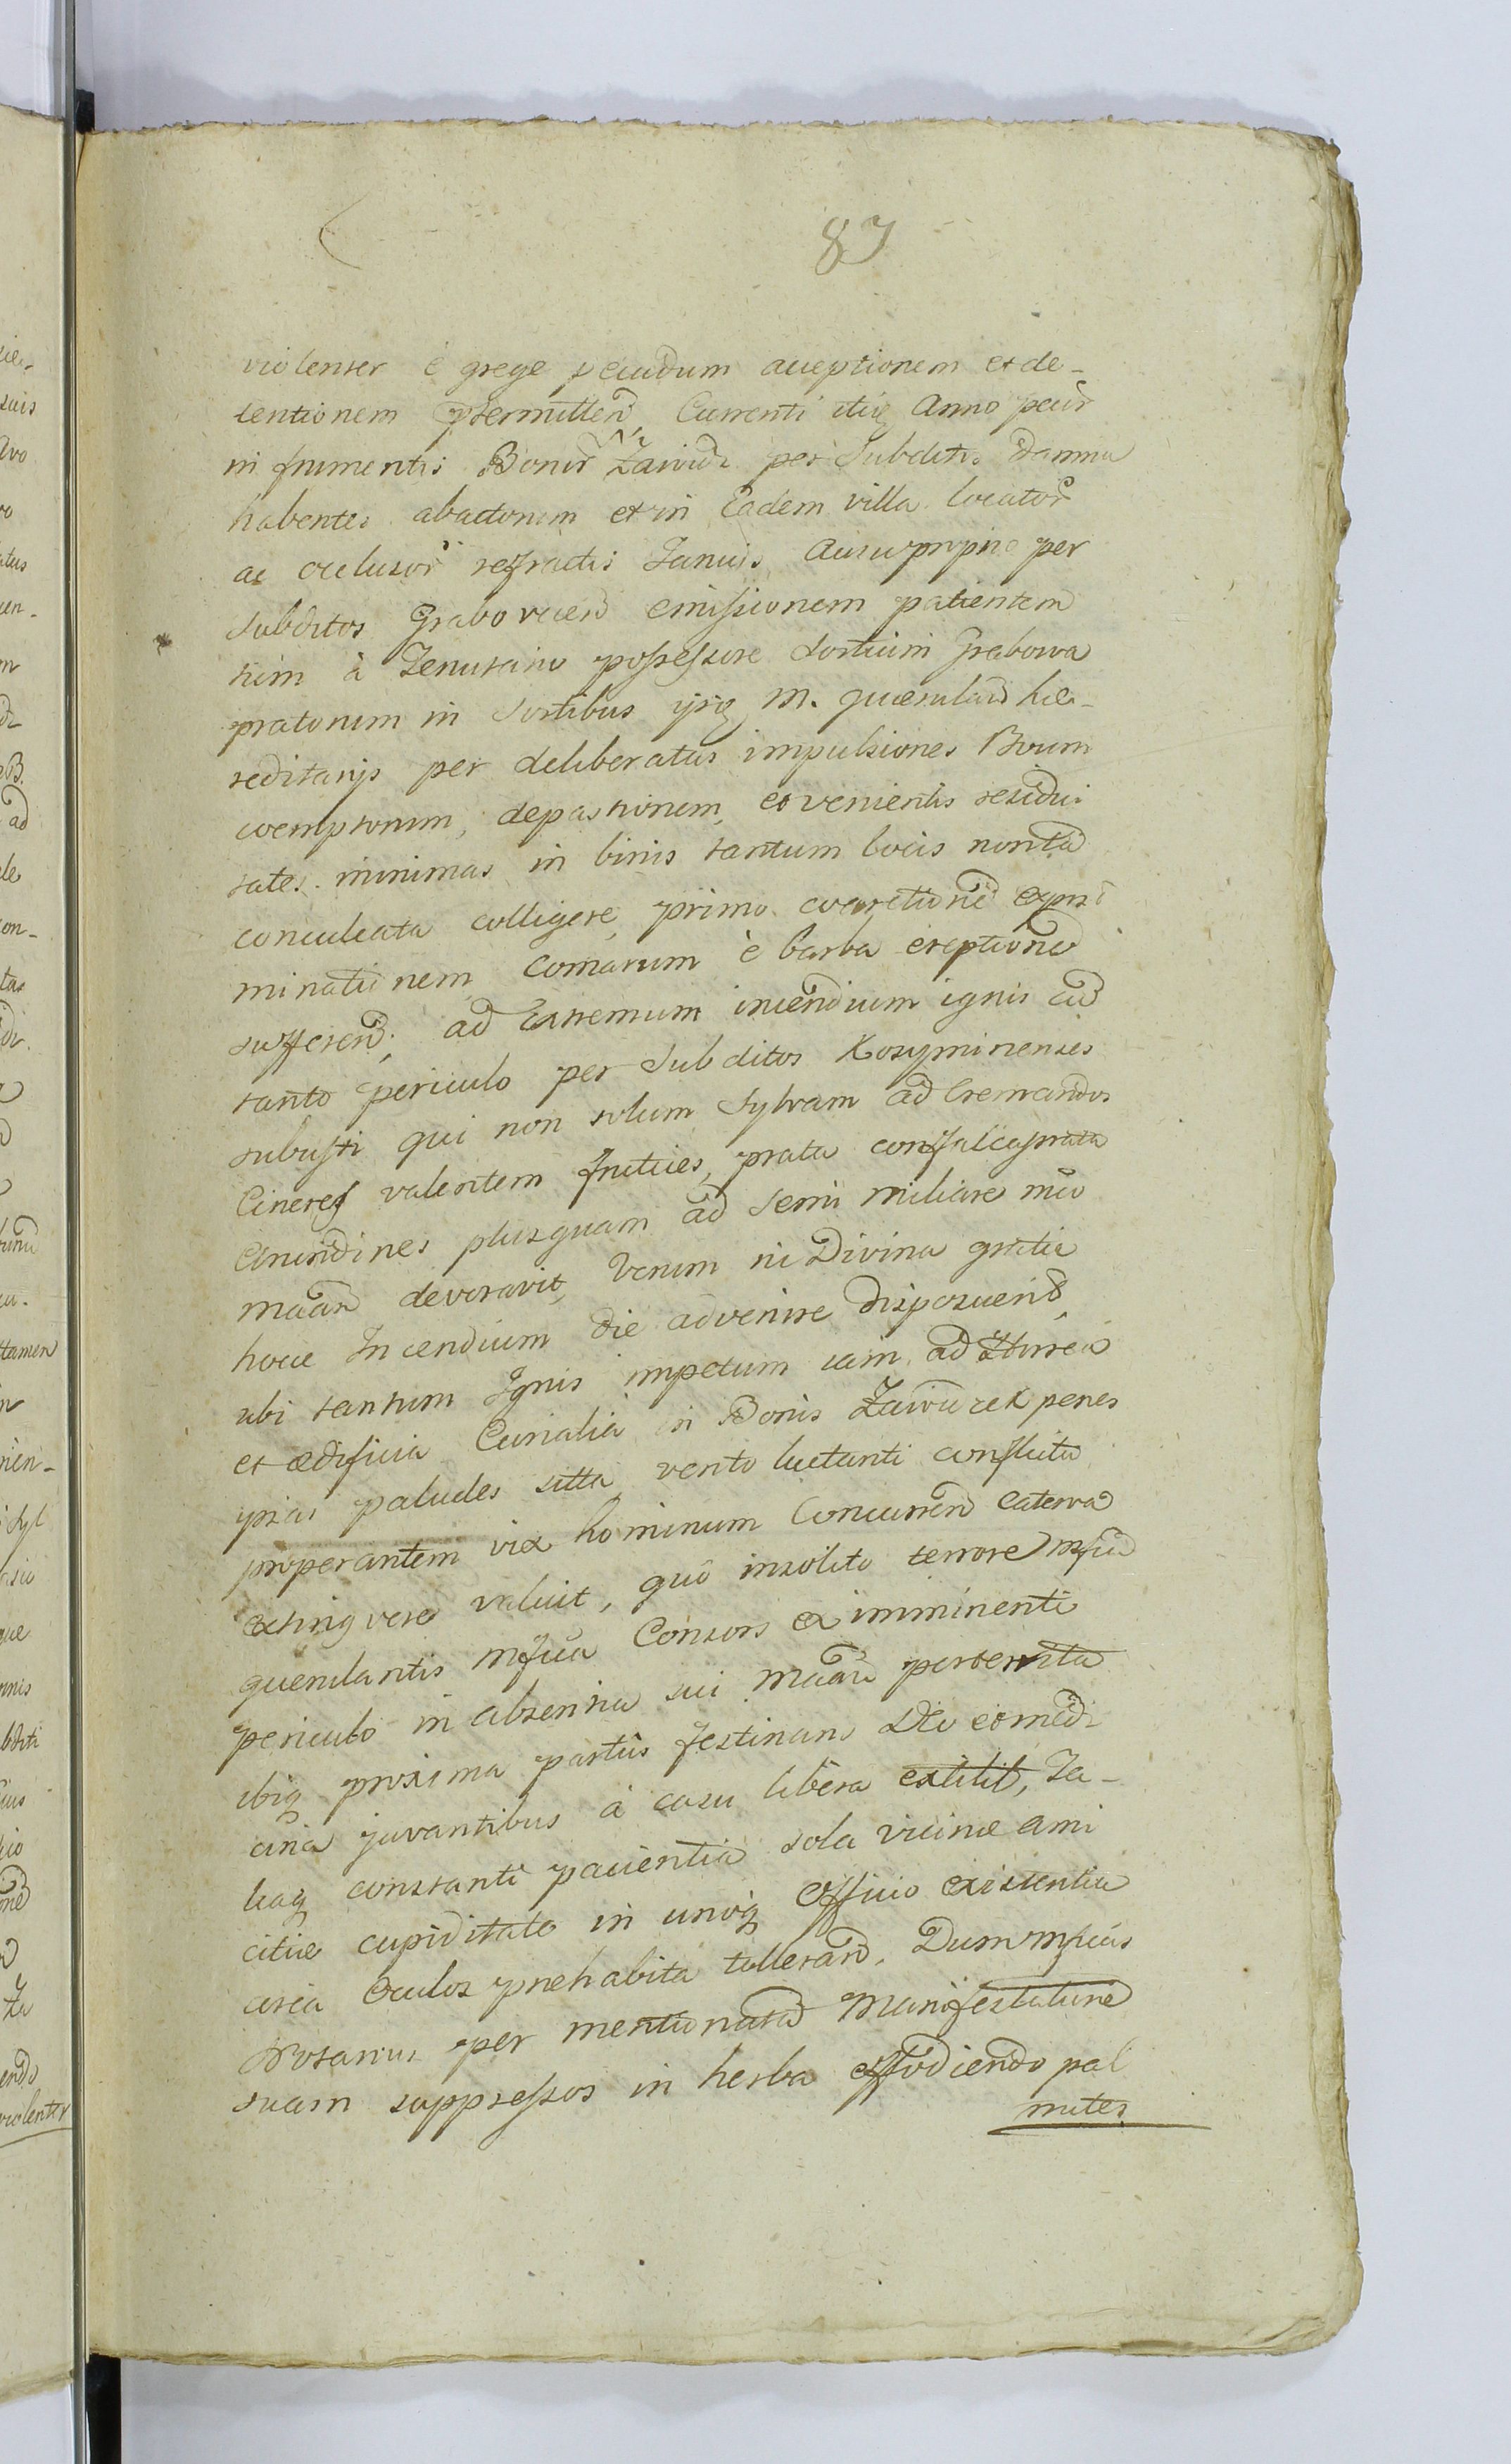 87
violenter è grege pecudum acceptionem et de-
tentionem ptermitten̄, Currenti itiq Anno pecur̄
in frumentis Bonor̄ Zawad per Subditos damna
habentes abactorum et in Eadem villa locator̄
ac occlusor̄ refractis Januis, Ausu proprio per
Subditos Grabovien̄ emissionem patientem
tum à Tenutario possessore Sortium Grabowa
pratorum in Sortibus ipsiq M. querulan̄ hæ-
reditarijs per deliberatas impulsiones Boum
coemptorum, depastionem, et venientis residui
tates minimas in binis tantum locis non ta
conculcata colligere, primo
minationem Comarum è barba ereptione
sufferen̄; ad Extremum incendium ignis cū
tanto periculo per Subditos Kozyminenses
subusti qui non solum Sylvam ad Cremandos
Cineres valentem frutices, prata
Arundines plusquam ad semi miliare
devoravit, Verum ni Divina gratia
hocce Incendium die advenire disposuerit,
ubi tantum Ignis impetum iam ad
et ædificia Curialia in Bonis penes
ipsas paludes sitta vento luctanti conflicta
properantem vix hominum Concurren̄ Caterva
extingvere valuit, quô insolito terrore
querulantis Mfica Consors ex imminenti
periculo in absentia sui perterrita
ibiq proxima partûs festinans Deo et medi
cina juvantibus à casu libera extitit, Ta-
liaq constanti pacientia sola vicinæ ami
citiæ cupiditate in unoq Officio existentia
circa Oculos præhabita tolleran̄. Dum Mficus
Notarius per mentionata Manifestatione
suam suppressos in herba effodiendo pal
mites